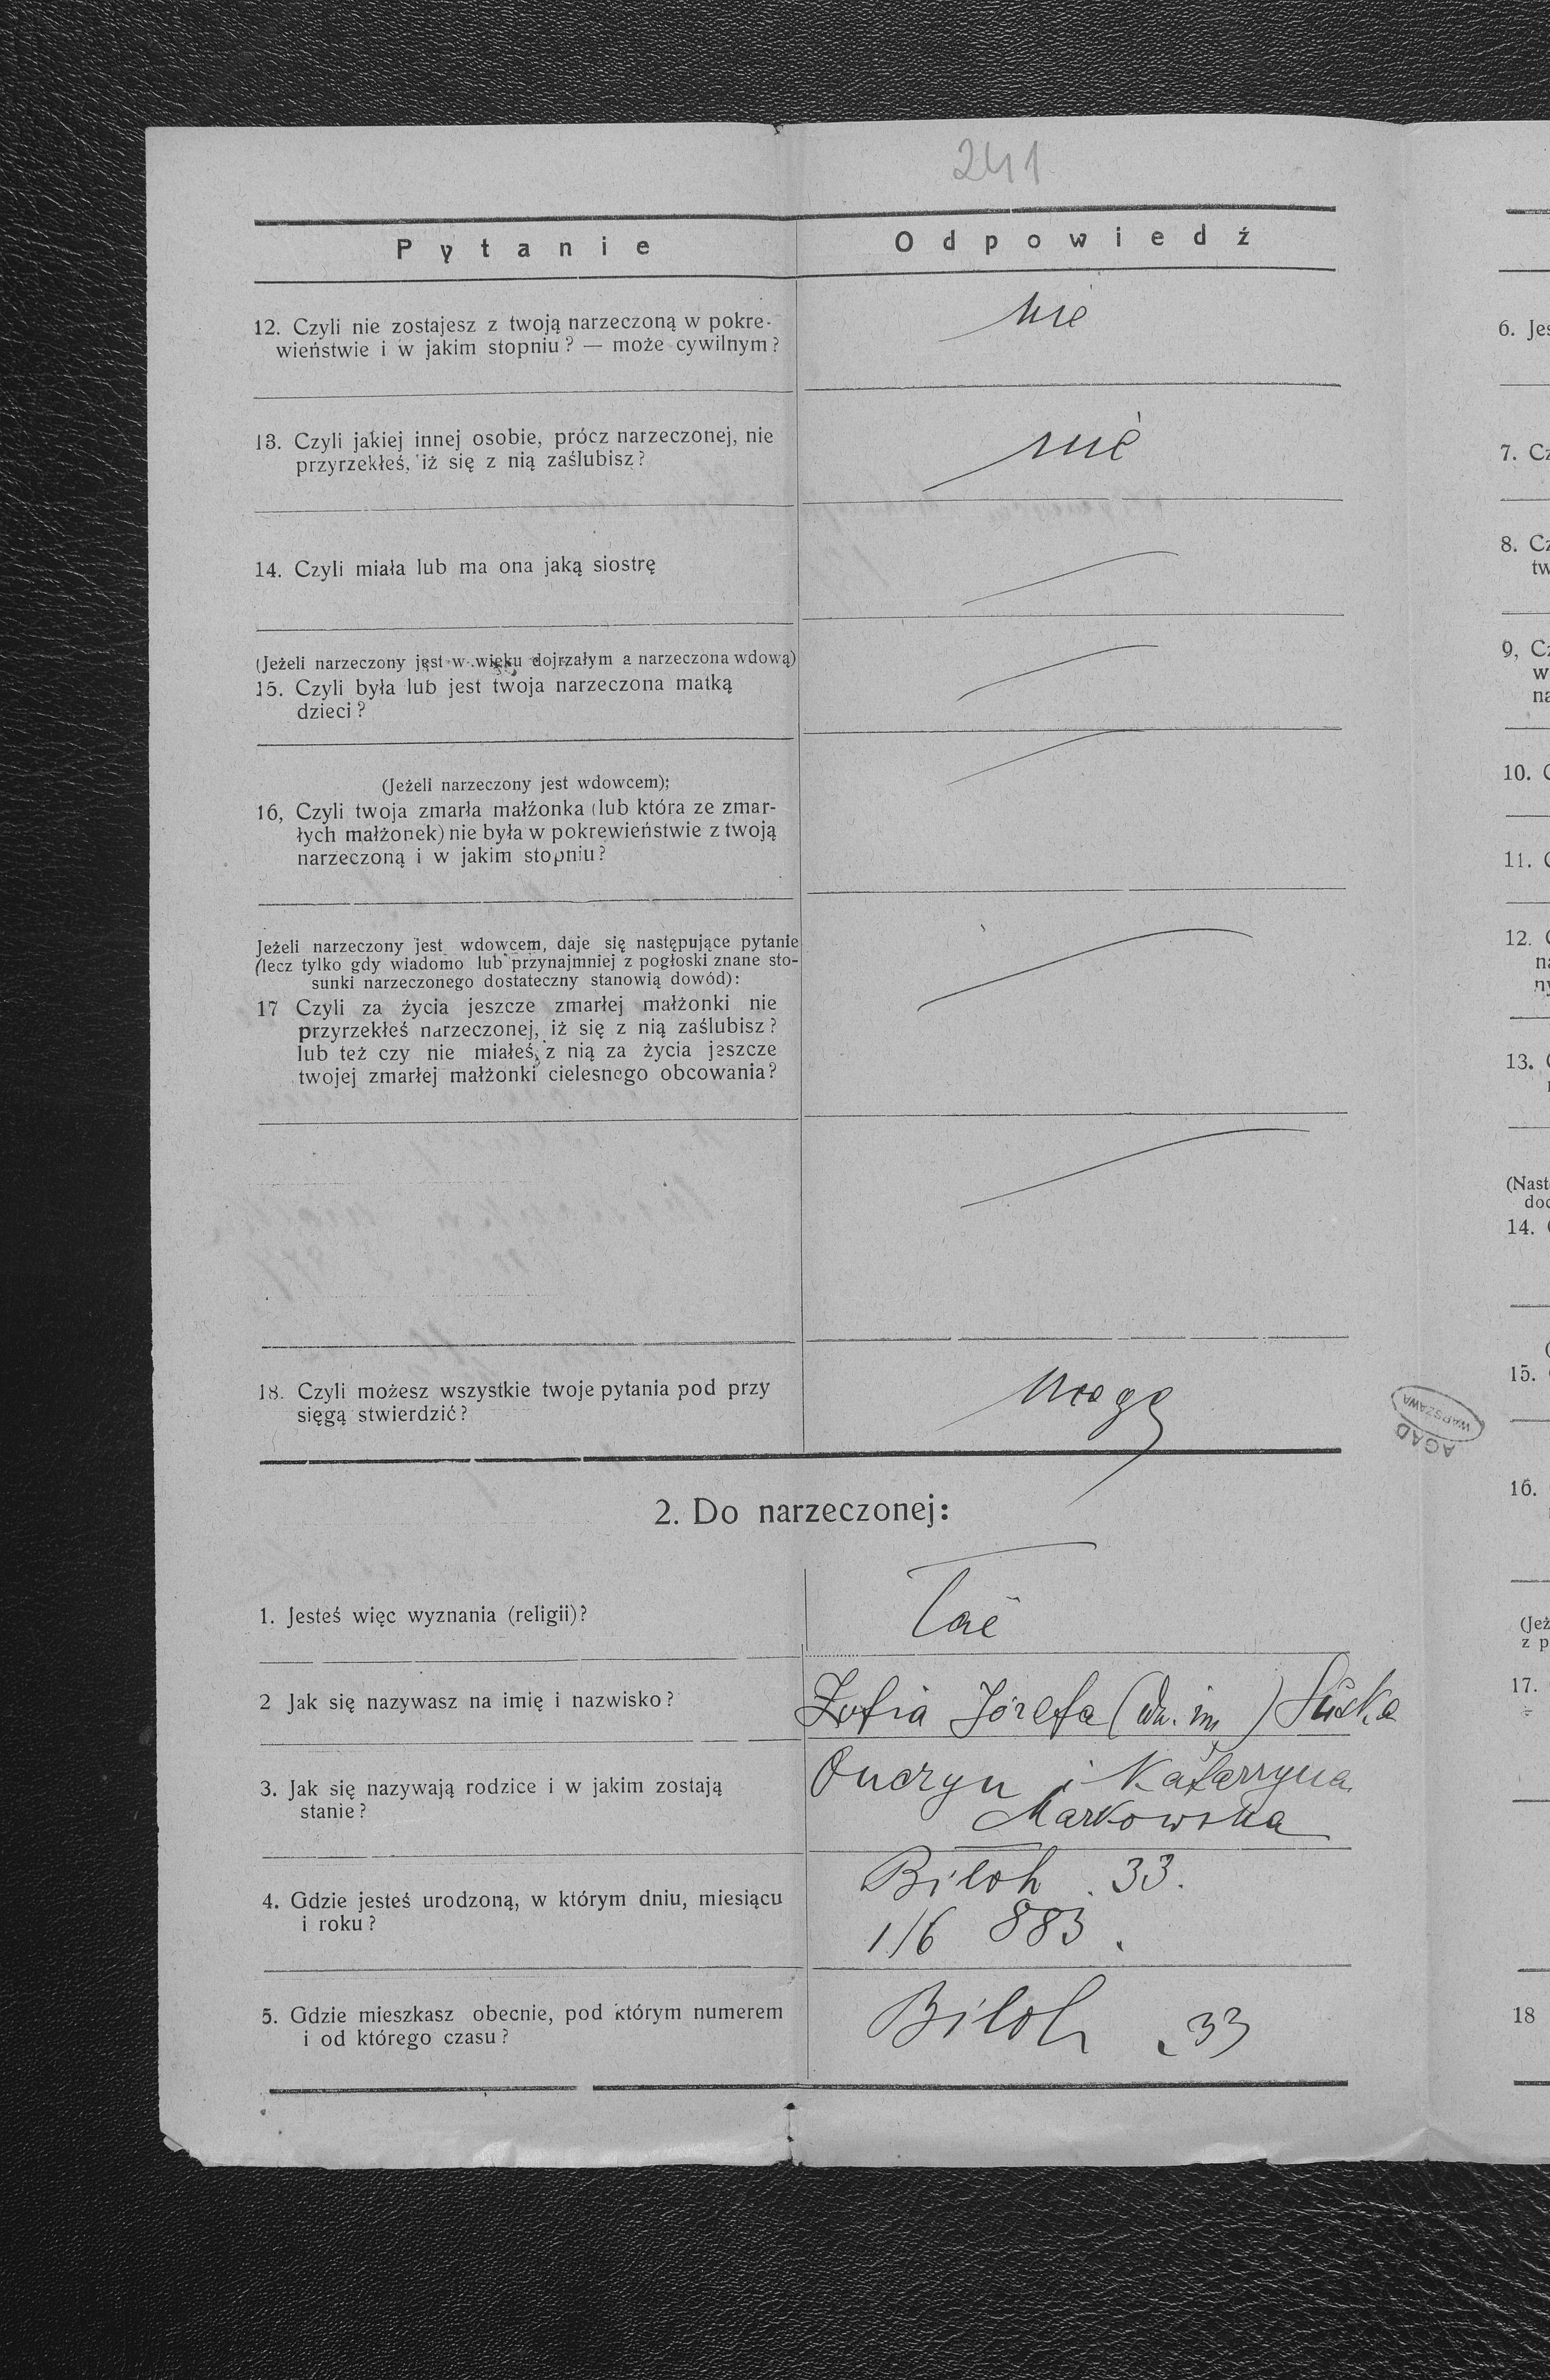 241
Pytanie Odpowiedź
12. Czyli nie zostajesz z twoją narzeczoną w pokre-
wieństwie i w jakim stopniu? — może cywilnym?
nie
13. Czyli jakiej innej osobie, prócz narzeczonej, nie
przyrzekłeś, iż się z nią zaślubisz?
nie
14. Czyli miała lub ma ona jaką siostrę
(Jeżeli narzeczony jest w wieku dojrzałym a narzeczona wdową)
15. Czyli była lub jest twoja narzeczona matką
dzieci?
(Jeżeli narzeczony jest wdowcem);
16, Czyli twoja zmarła małżonka (lub która ze zmar-
łych małżonek) nie była w pokrewieństwie z twoją
narzeczoną i w jakim stopniu?
Jeżeli narzeczony jest wdowcem, daje się następujące pytanie
(lecz tylko gdy wiadomo lub przynajmniej z pogłoski znane sto-
sunki narzeczonego dostateczny stanowią dowód):
17 Czyli za życia jeszcze zmarłej małżonki nie
przyrzekłeś narzeczonej, iż się z nią zaślubisz?
lub też czy nie miałeś z nią za życia jeszcze
twojej zmarłej małżonki cielesnego obcowania?
18. Czyli możesz wszystkie twoje pytania pod przy
sięgą stwierdzić?
Mogę
2. Do narzeczonej:
1. Jesteś więc wyznania (religii)?
2 Jak się nazywasz na imię i nazwisko?
Zofia Józefa (dw. im)
3. Jak się nazywają rodzice i w jakim zostają
stanie?
i Katarzyna
Markowska
4. Gdzie jesteś urodzoną, w którym dniu, miesiącu
i roku?
Biłoh. 33.
1/6 883.
5. Gdzie mieszkasz obecnie, pod którym numerem
i od którego czasu?
Biłoh 33
AGAD
WARSZAWA
6. Jes
7. Cz
8. Cz
tw
9, Cz
w
na
10. C
11. C
12. C
na
ny
13. C
(Nast
doc
14. C
15.
16.
(Jeż
z p
17.
18